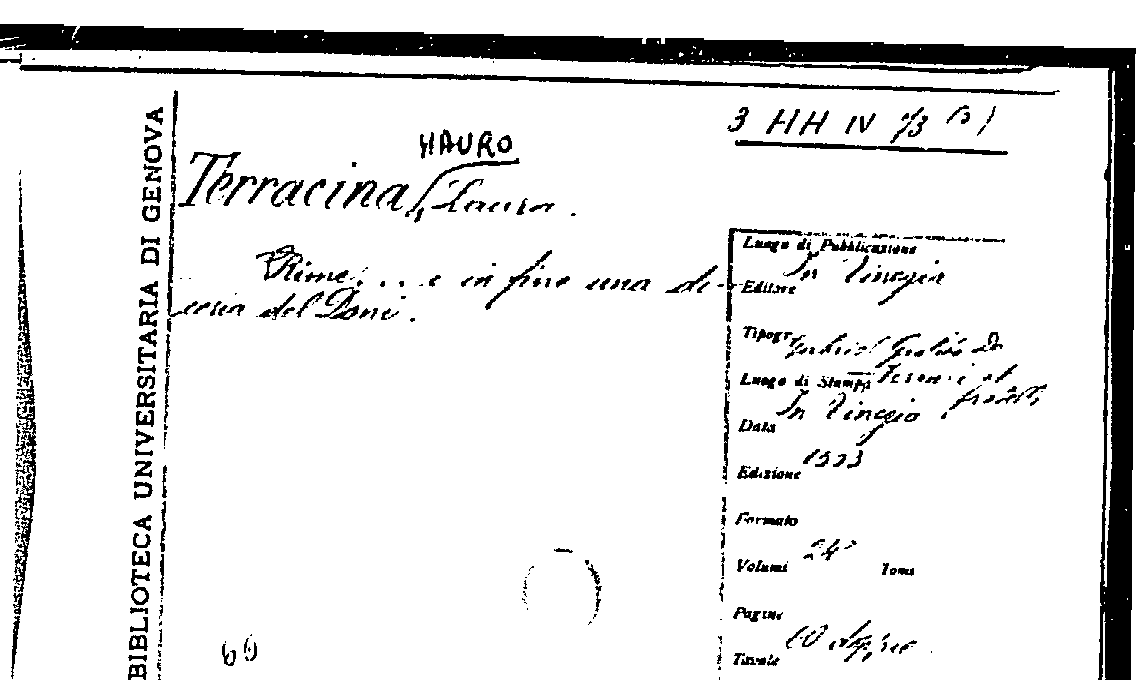 BIBLIOTECA UNIVERSITARIA DI GENOVA
3 HH IV
HAURO
Terracina, Laura.
Rime... e in fine una di-
ceria del Doni.
Luogo di Pubblicazione
In Vinegia
Editore
Tipogr. Gabriel
Luogo di Stampa
In Vinegia
fratelli
Data
1553
Edizione
Formato
24°
Volumi Tomi
Pagine
60
Tavole
60